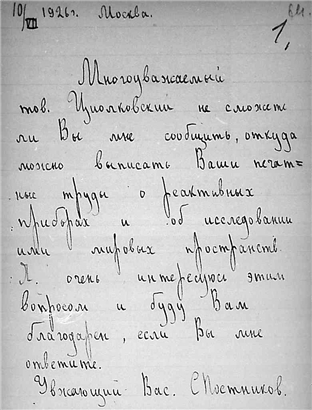 10/VII 1926г. Москва.
1,
Многоуважаемый
тов. Циолковский не сможете
ли Вы мне сообщить, откуда
можно выписать Ваши печат=
ные труды о реактивных
приборах и об исследовании
ими мировых пространств.
Я очень интересуюсь этим
вопросом и буду Вам
благодарен, если Вы мне
ответите.
Уважающий Вас. С Постников.